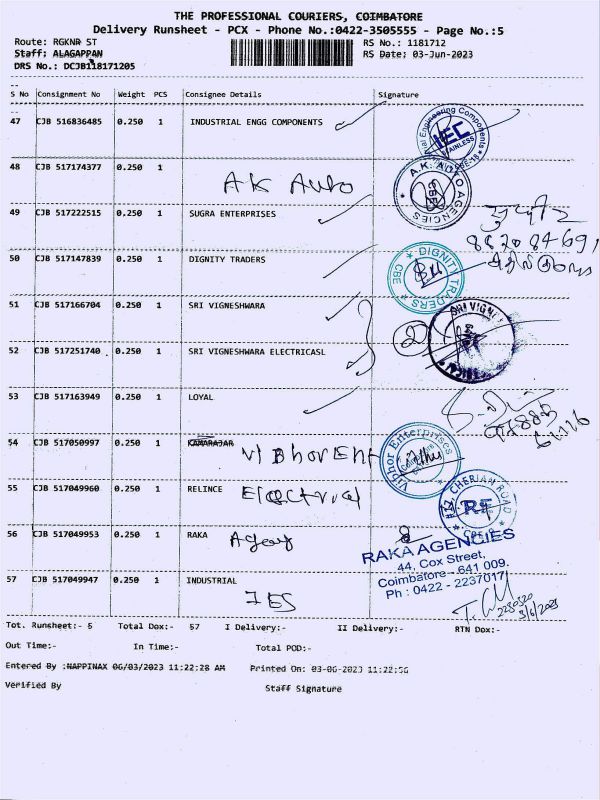 THE PROFESSIONAL COURIERS, COIMBATORE
Delivery Runsheet - PCX - Phone No.:0422-3505555 - Page No.:5
Route: RGKNR ST
RS No.: 1181712
Staff: ALAGAPPAN
RS Date: 03-Jun-2023
DRS No.: DCJB118171205
S No Consignment No Weight PCS Consignee Details Signature
47 CJB 516836485 0.250 1 INDUSTRIAL ENGG COMPONENTS
Engineering Components
IEC
48 CJB 517174377 0.250 1
AK Auto
A.K. AUTO AGENCIES
CBE
49 CJB 517222515 0.250 1 SUGRA ENTERPRISES
50 CJB 517147839 0.250 1 DIGNITY TRADERS
DIGNITY TRADERS
CBE
51 CJB 517166704 0.250 1 SRI VIGNESHWARA
2
52 CJB 517251740 0.250 1 SRI VIGNESHWARA ELECTRICASL
53 CJB 517163949 0.250 1 LOYAL
54 CJB 517050997 0.250 1 KAMARAJAR
Vibhor Ent
Vibhor Enterprises
55 CJB 517049960 0.250 1 RELINCE
Electrical
CHERIAN ROAD
RE
56 CJB 517049953 0.250 1 RAKA
Agency
RAKA AGENCIES
44, Cox Street,
Coimbatore - 641 009.
Ph : 0422 - 2237017
57 CJB 517049947 0.250 1 INDUSTRIAL
IES
3/6/2023
Tot. Runsheet:- 5 Total Dox:- 57 I Delivery:- II Delivery:- RTN Dox:-
Out Time:- In Time:- Total POD:-
Entered By :NAPPINAX 06/03/2023 11:22:28 AM Printed On: 03-06-2023 11:22:56
Verified By Staff Signature